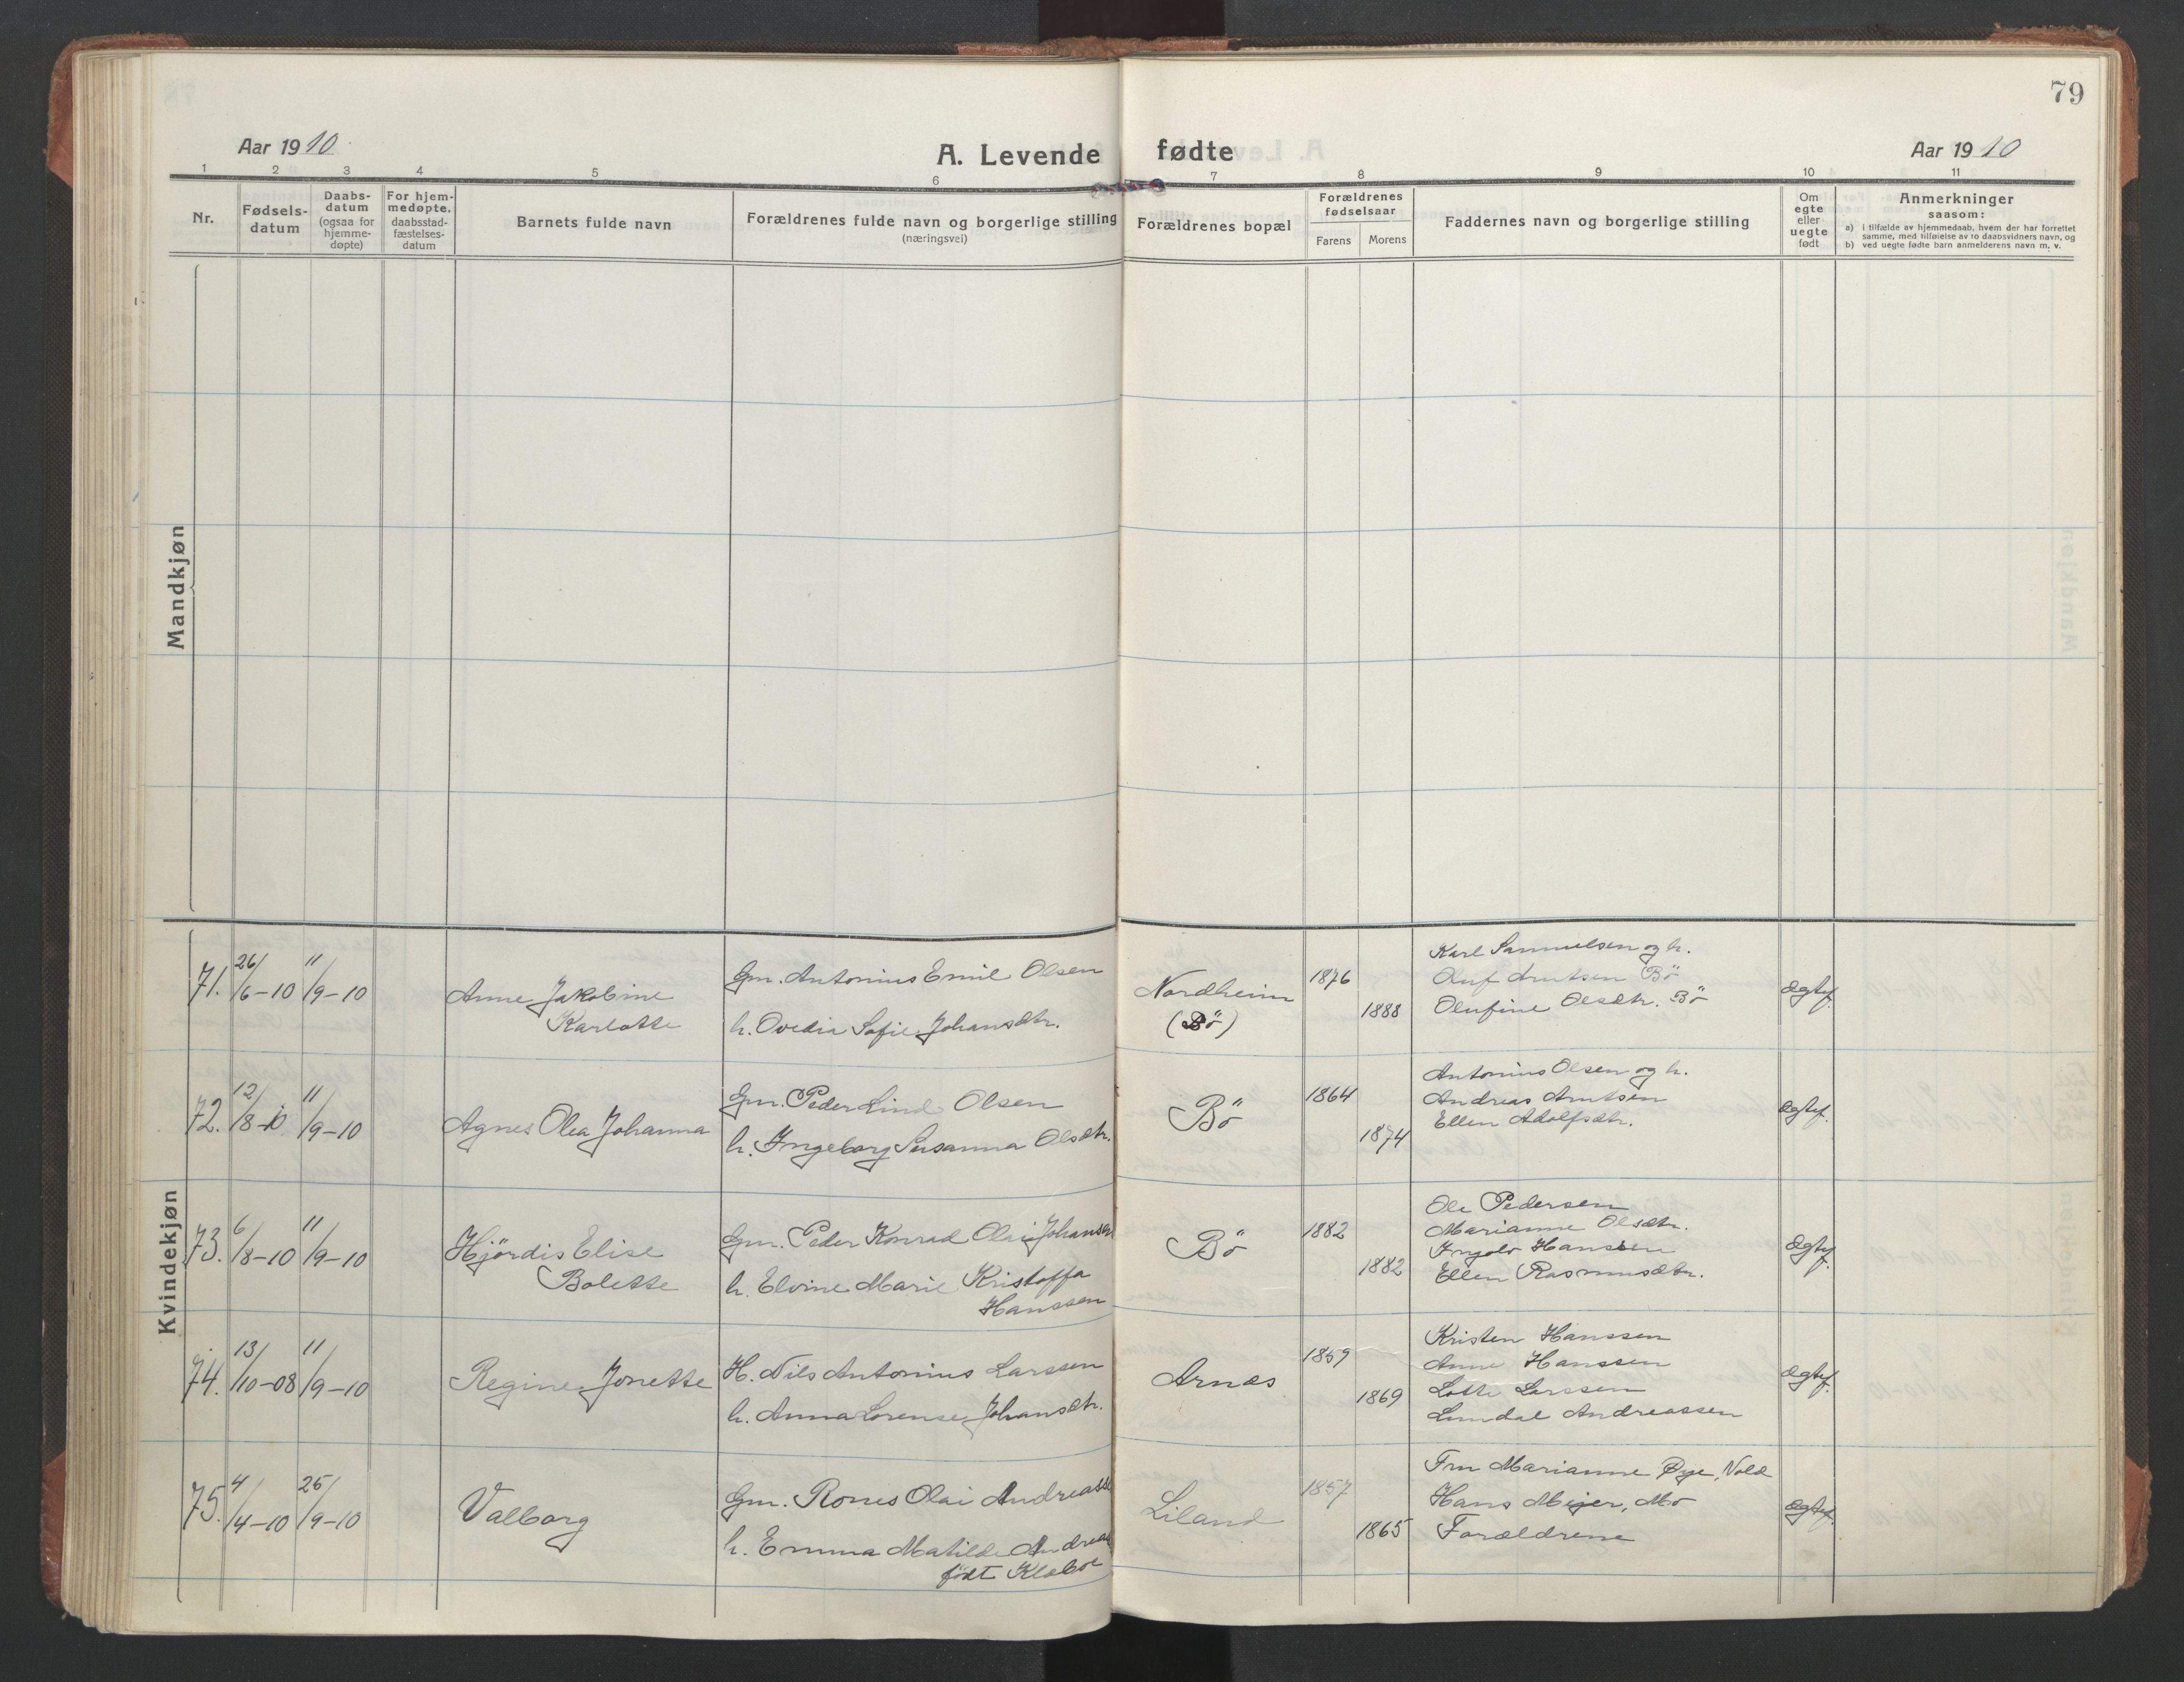 79
Aar 1910
A. Levende fødte
Aar 1910
1 2 3 4 5 6 7 8 9 10 11
Nr.
Fødsels-
datum
Daabs-
datum
(ogsaa for
hjemme-
døpte)
For hjem-
medøpte,
daabsstad-
fæstelses-
datum
Barnets fulde navn
Forældrenes fulde navn og borgerlige stilling
(næringsvei)
Forældrenes bopæl
Forældrenes
fødselsaar
Farens Morens
Faddernes navn og borgerlige stilling
Om
egte
eller
uegte
født
Anmerkninger
saasom:
a) i tilfælde av hjemmedaab, hvem der har forrettet
samme, med tilføielse av to daabsvidners navn, og
b) ved uegte fødte barn anmelderens navn m. v.
Mandkjøn
Kvindekjøn
71. 26/6-10 11/9-10
Anne Jakobine
Karlotte
Gm. Antonius Emil Olsen
h. Ovedia Sofie Johansdtr.
Nordheim
(Bö)
1876
1888
Karl Samuelsen og h.
Oluf Arntsen Bö
Olufine Olsdtr. Bö
Ægtef.
72. 12/8-10 11/9-10
Agnes Olea Johanna
Gm. Peder Lind Olsen
h. Ingeborg Susanna Olsdtr.
Bö
1864
1874
Antonius Olsen og h.
Andreas Arntsen
Ellen Adolfsdtr.
Ægtef.
73. 6/8-10 11/9-10
Hjördis Elise
Bolette
Gm. Peder Konrad Olai Johansen
h. Elvine Marie Kristoffa
Hanssen
Bö
1882
1882
Ole Pedersen
Marianne Olsdtr.
Ingolv Hanssen
Ellen Rasmusdtr.
Ægtef.
74. 13/10-08 11/9-10
Regine Jonette
H. Nils Antonius Larssen
h. Anna Lorense Johansdtr.
Arnæs
1859
1869
Kristen Hanssen
Anne Hanssen
Lotte Larssen
Lundal Andreassen
Ægtef.
75. 4/4-10 25/9-10
Valborg
Gm. Rones Olai Andreass
h. Emma Matilde Andreas
födt Klæboe
Liland
1857
1865
Fru Marianne Øye, Vold
Hans Mejer, Mo
Forældrene
Ægtef.